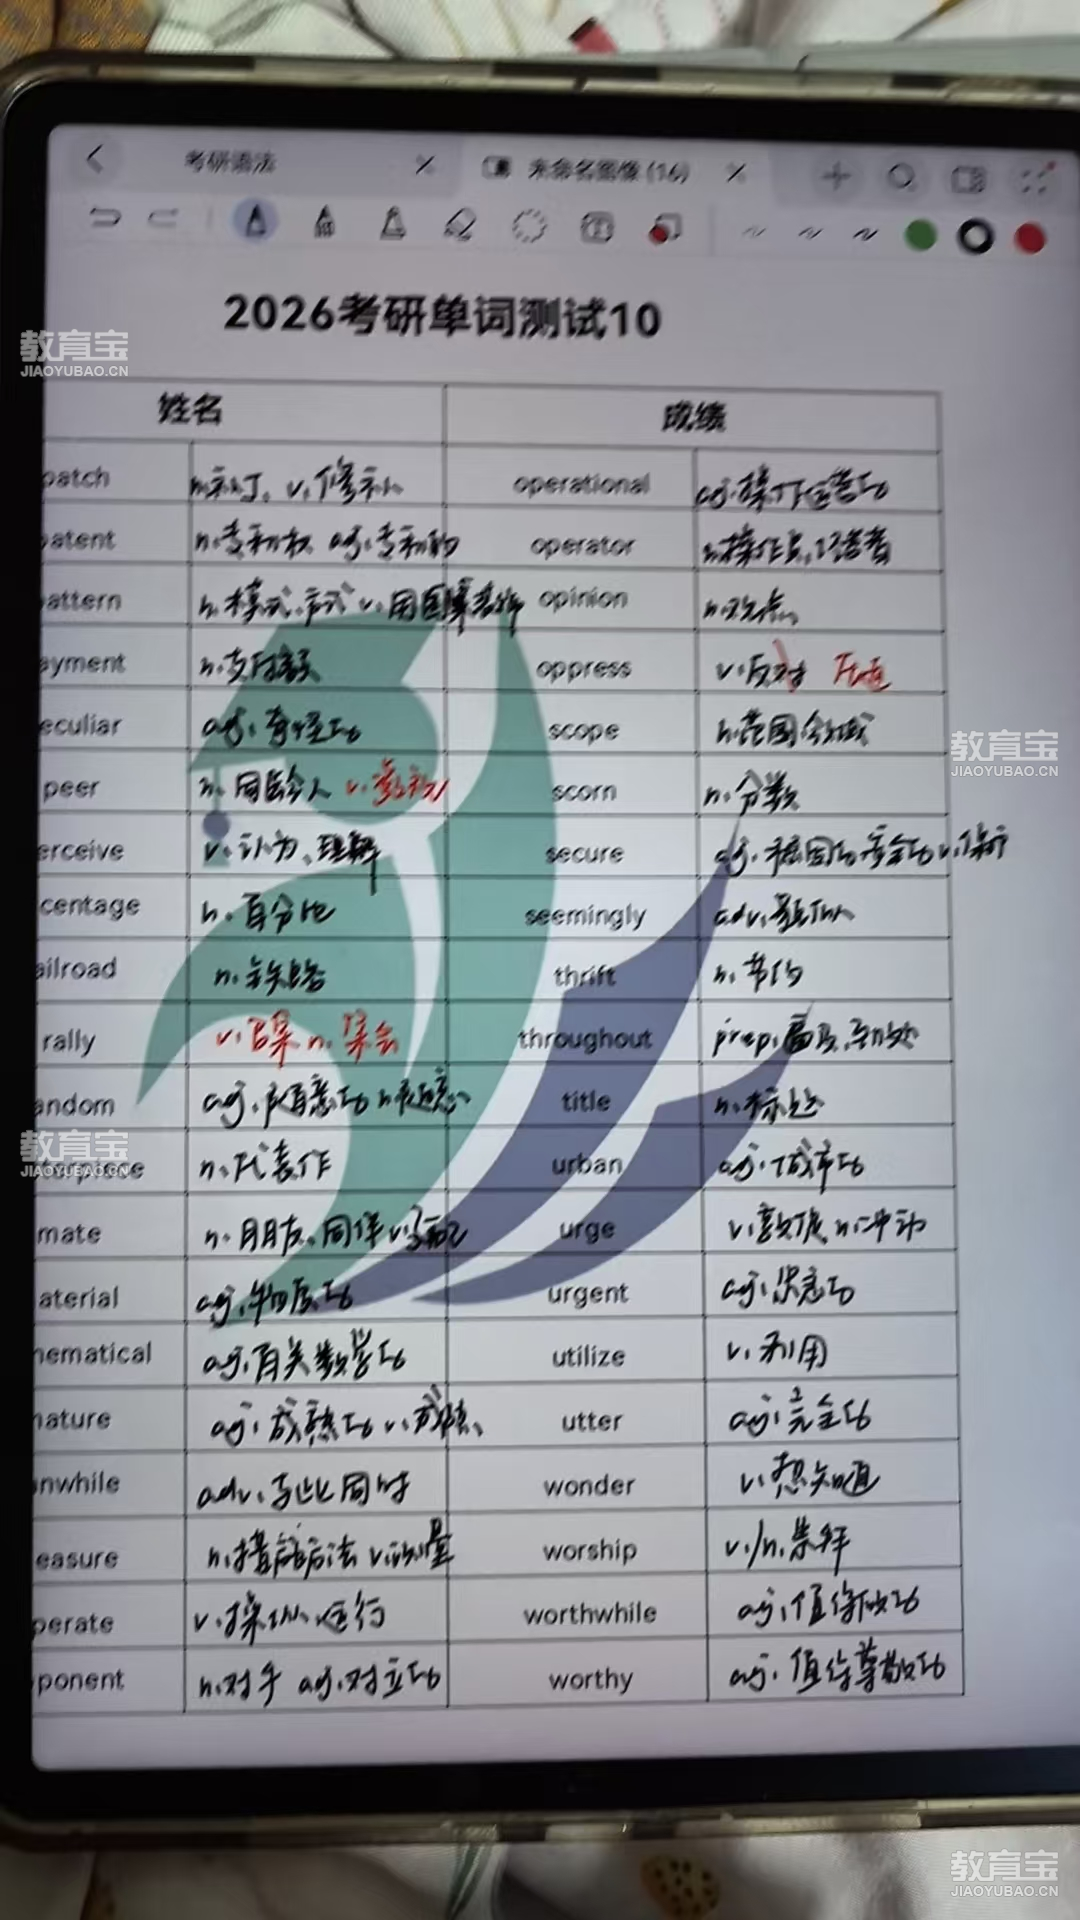 考研语法
未命名图像(16)
2026考研单词测试10
教育宝
JIAOYUBAO.CN
姓名 成绩
patch n.补丁. v.修补 operational adj.操作的运营的
patent n.专利权 adj.专利的 operator n.操作员,经营者
attern n.模式.方式 v.用图案 opinion n.观点
ayment n.支付 oppress v.反对 压迫
eculiar adj.奇怪的 scope n.范围 领域
教育宝
JIAOYUBAO.CN
peer n.同龄人 v. scorn n.分数
erceive v.认为,理解 secure adj.稳固的 安全的 v.保护
centage n.百分比 seemingly adv.
ailroad n.铁路 thrift n.节约
rally v.召集 n.集会 throughout prep.遍及,到处
andom adj.随意的 n.随意 title n.标题
教育宝
JIAOYUBAO.CN
n.代表作 urban adj.城市的
mate n.朋友,同伴 v. urge v.敦促 n.冲动
aterial adj.物质的 urgent adj.紧急的
hematical adj.有关数学的 utilize v.利用
ature adj.成熟的 v.成熟 utter adj.完全的
nwhile adv.与此同时 wonder v.想知道
easure n.措施方法 v.测量 worship v./n.崇拜
perate v.操纵,运行 worthwhile adj.值得做的
ponent n.对手 adj.对立的 worthy adj.值得尊敬的
教育宝
JIAOYUBAO.CN